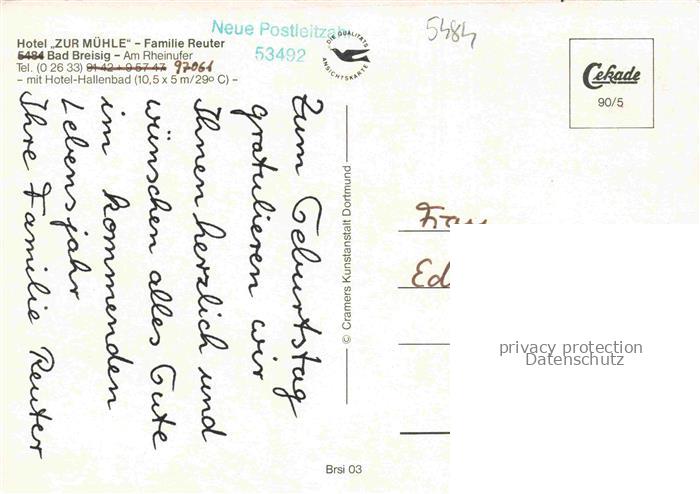 Hotel „ZUR MÜHLE“ – Familie Reuter
5484 Bad Breisig – Am Rheinufer
Tel. (0 26 33) 91 42 + 9 57 47 97061
– mit Hotel-Hallenbad (10,5 x 5 m/29º C) –
Neue Postleitzahl
53492
DIE QUALITÄTS
ANSICHTSKARTE
5484
Cekade
90/5
Zum Geburtstag
gratulieren wir
Ihnen herzlich und
wünschen alles Gute
im kommenden
Lebensjahr
Ihre Familie Reuter
© Cramers Kunstanstalt Dortmund
Frau
Ed
privacy protection
Datenschutz
Brsi 03